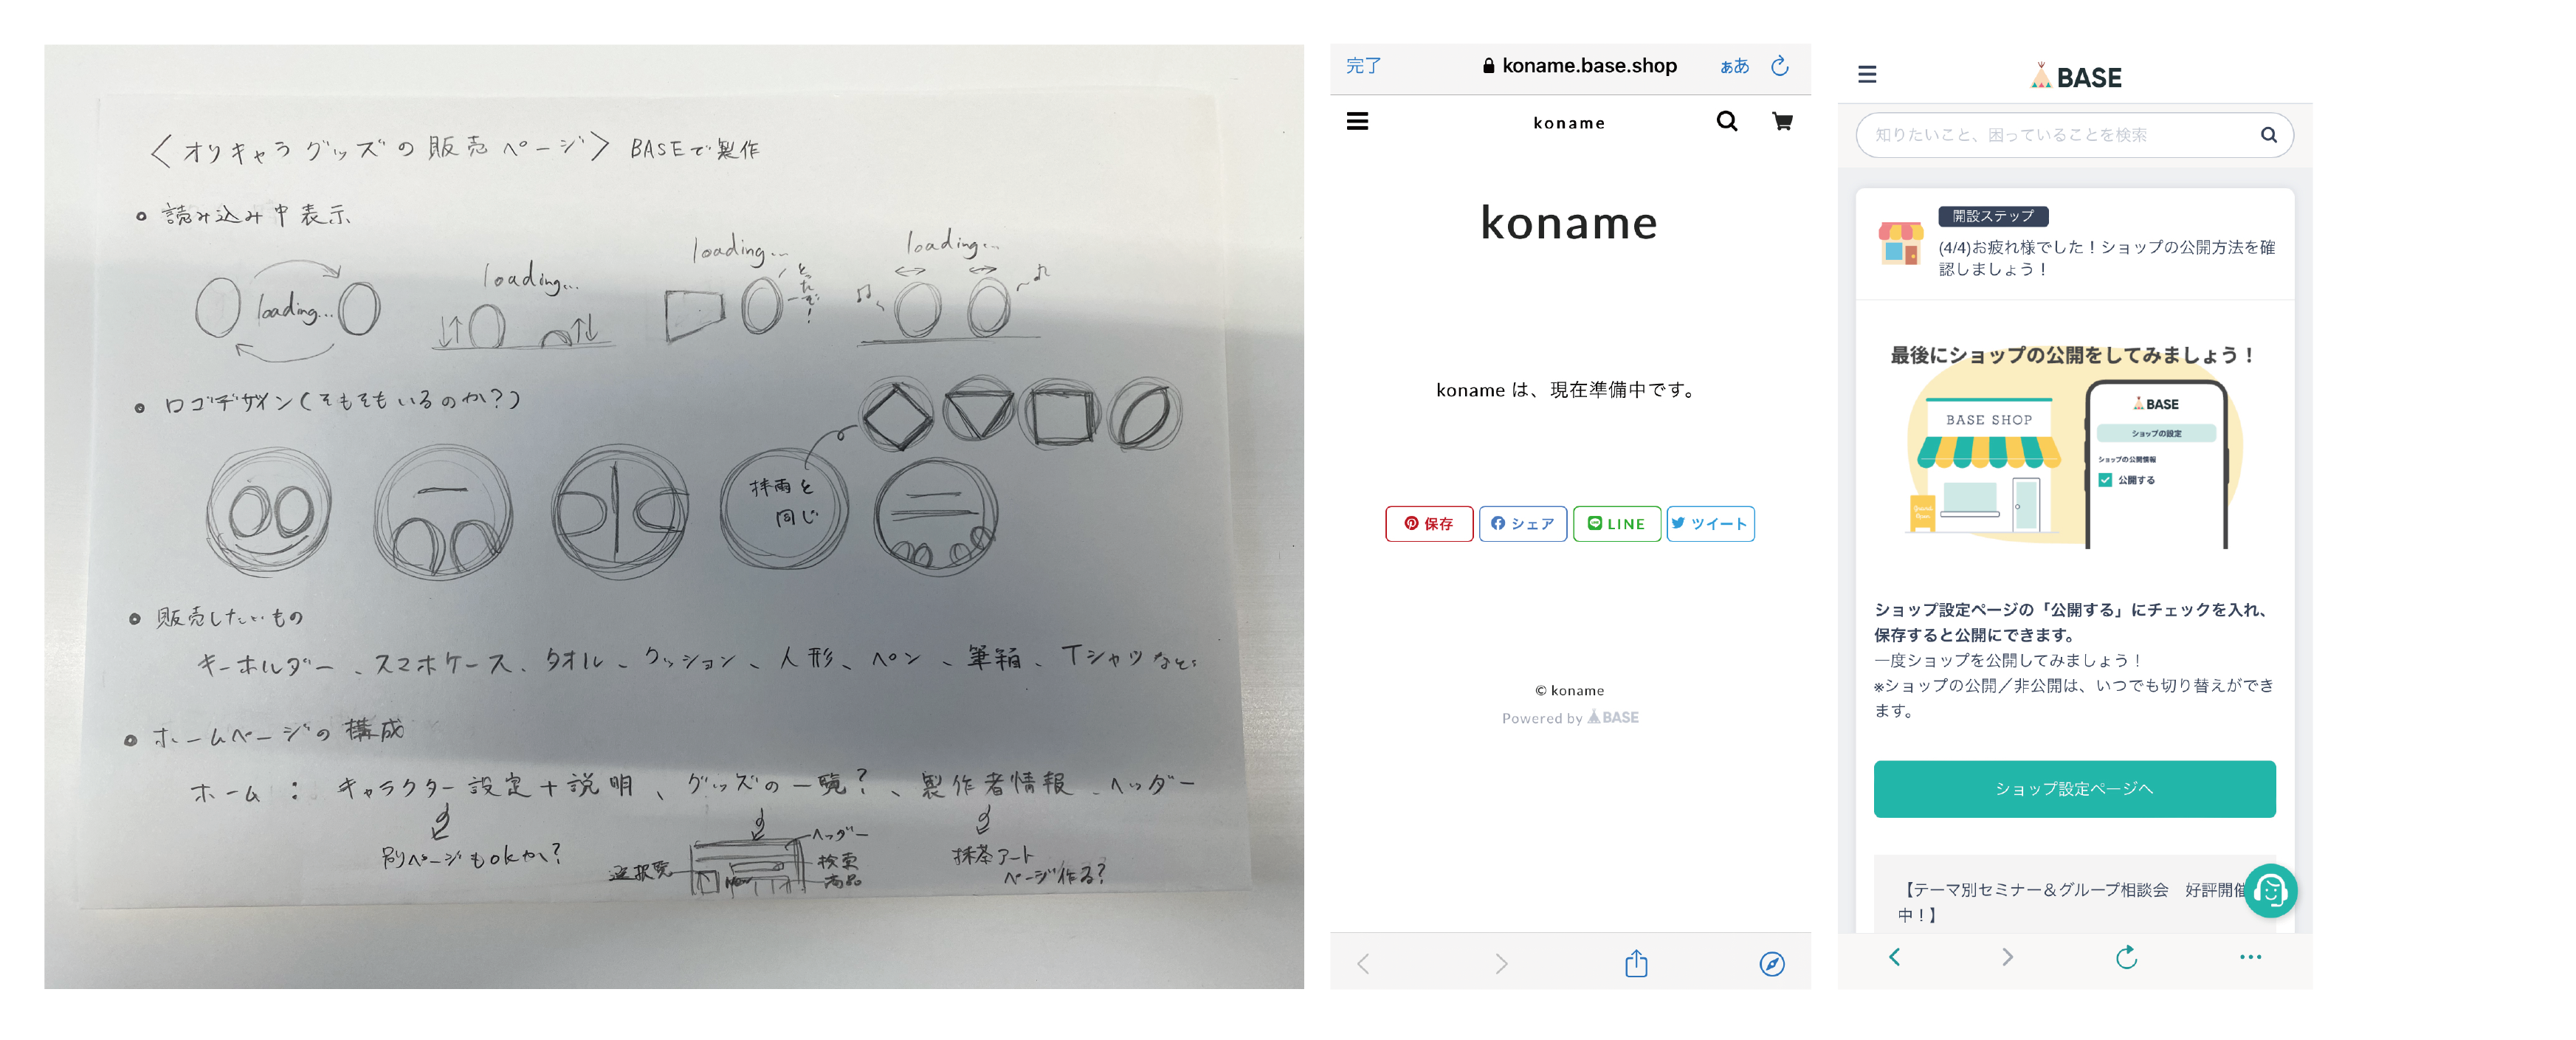 〈オリキャラグッズの販売ページ〉 BASEで製作
• 読み込み中表示
loading...
loading...
loading...
とったぞー!
loading...
• ロゴデザイン(そもそもいるのか?)
拝雨と
同じ
• 販売したいもの
キーホルダー、スマホケース、タオル、クッション、人形、ペン、筆箱、Tシャツなど
• ホームページの構成
ホーム : キャラクター設定+説明、グッズの一覧?、製作者情報、ヘッダー
別ページもokか?
選択覧
ヘッダー
検索
商品
抹茶アート
ページ作る?
完了
koname.base.shop
ぁあ
koname
koname
koname は、現在準備中です。
保存
シェア
LINE
ツイート
© koname
Powered by BASE
BASE
知りたいこと、困っていることを検索
開設ステップ
(4/4)お疲れ様でした！ショップの公開方法を確
認しましょう！
最後にショップの公開をしてみましょう！
BASE SHOP
BASE
ショップの設定
ショップの公開情報
公開する
ショップ設定ページの「公開する」にチェックを入れ、
保存すると公開にできます。
一度ショップを公開してみましょう！
※ショップの公開／非公開は、いつでも切り替えができ
ます。
ショップ設定ページへ
【テーマ別セミナー＆グループ相談会　好評開催
中！】